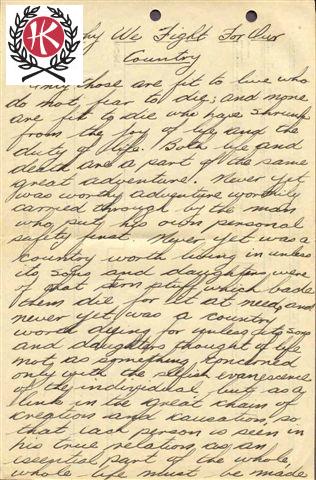 HK
Why We Fight For Our
Country
Only those are fit to live who
do not fear to die; and none
are fit to die who have shrunk
from the joy of life and the
duty of life. Both life and
death are a part of the same
great adventure. Never yet
was worthy adventure worthily
carried through by the man
who puts his own personal
safety first. Never yet was a
country worth living in unless
its sons and daughters were
of that stern stuff which bade
them die for it at need; and
never yet was a country
worth dying for unless its sons
and daughters thought of life
not as something concerned
only with the selfish evanescence
of the individual, but as a
link in the great chain of
kreations and kausation, so
that each person is seen in
his true relations as an
essential part of the whole,
whole life must be made